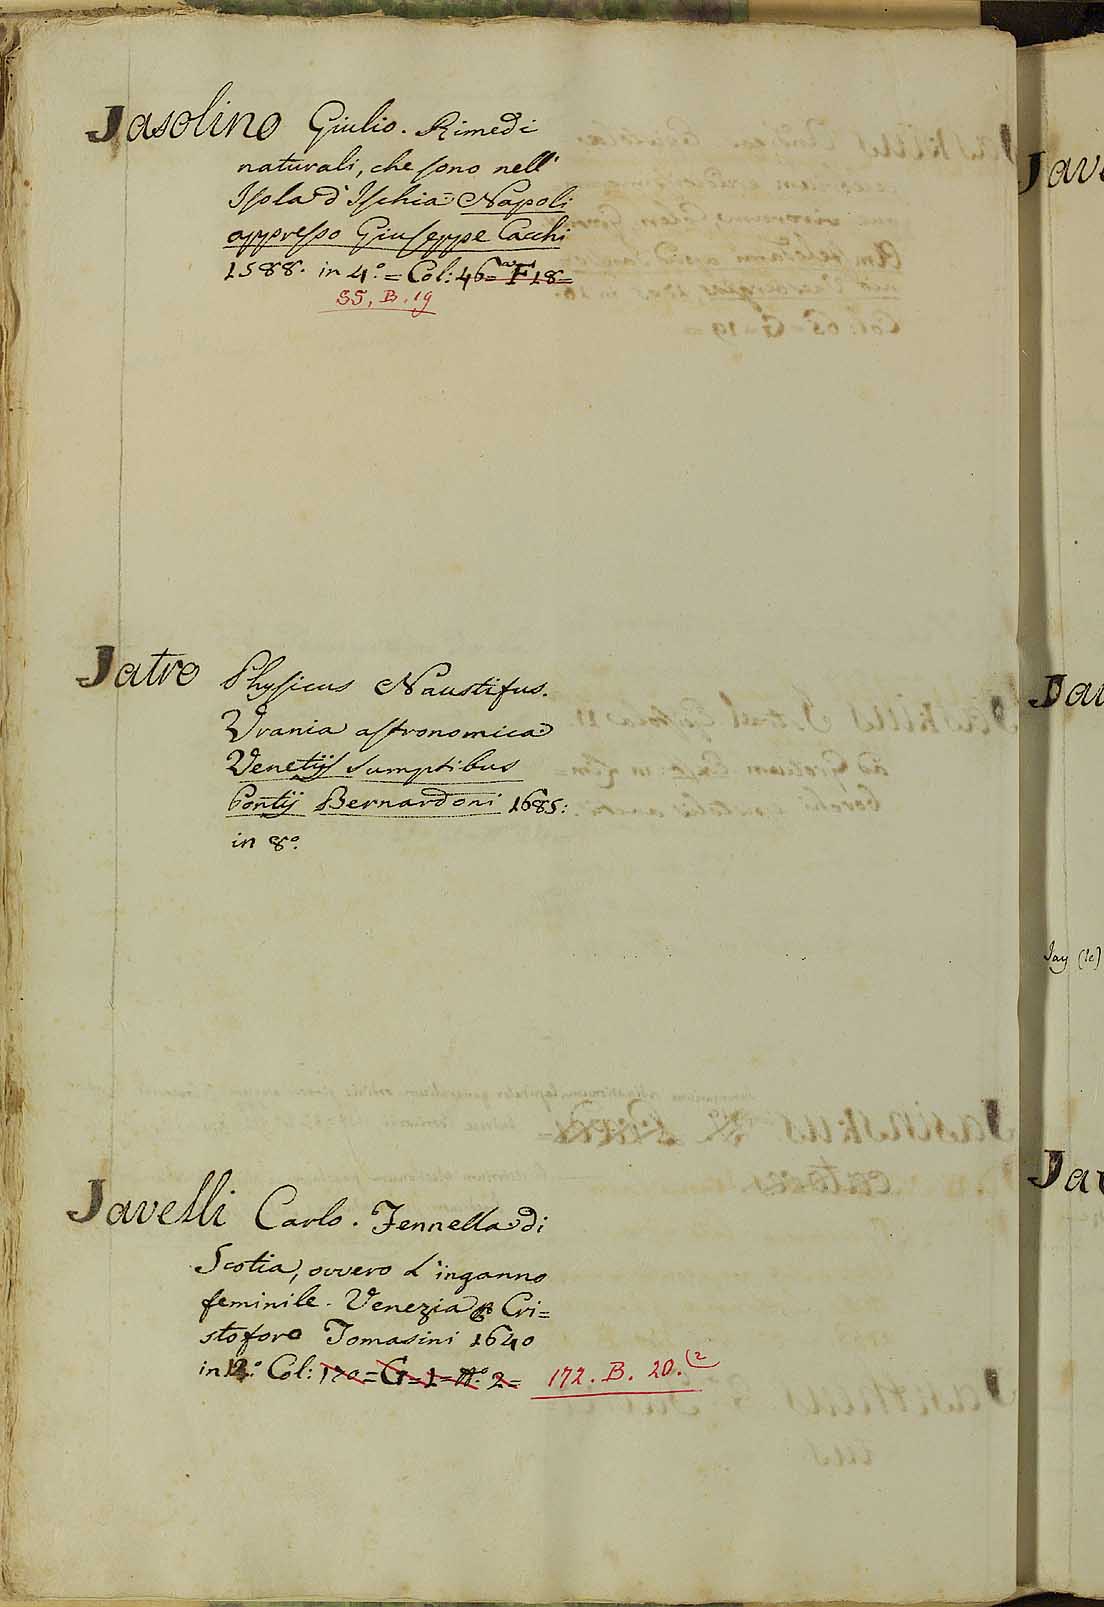 Jasolino Giulio. Rimedi
naturali, che sono nell'
Isola d'Ischia Napoli
appresso Giuseppe Cacchi
1588. in 4.° = Col: 46 = F 18 =
35. B. 19
Jatro Physicus Naustifus.
Urania astronomica
Venetijs sumptibus
Pontij Bernardoni 1685:
in 8.°
Javelli Carlo. Fennella di
Scotia, ovvero l'inganno
feminile. Venezia Cri=
stoforo Tomasini 1640
in 12.° Col: 170 = G = 1 = N.° 2 = 172. B. 20. (2
Jave
Jav
Jay (le)
Jav